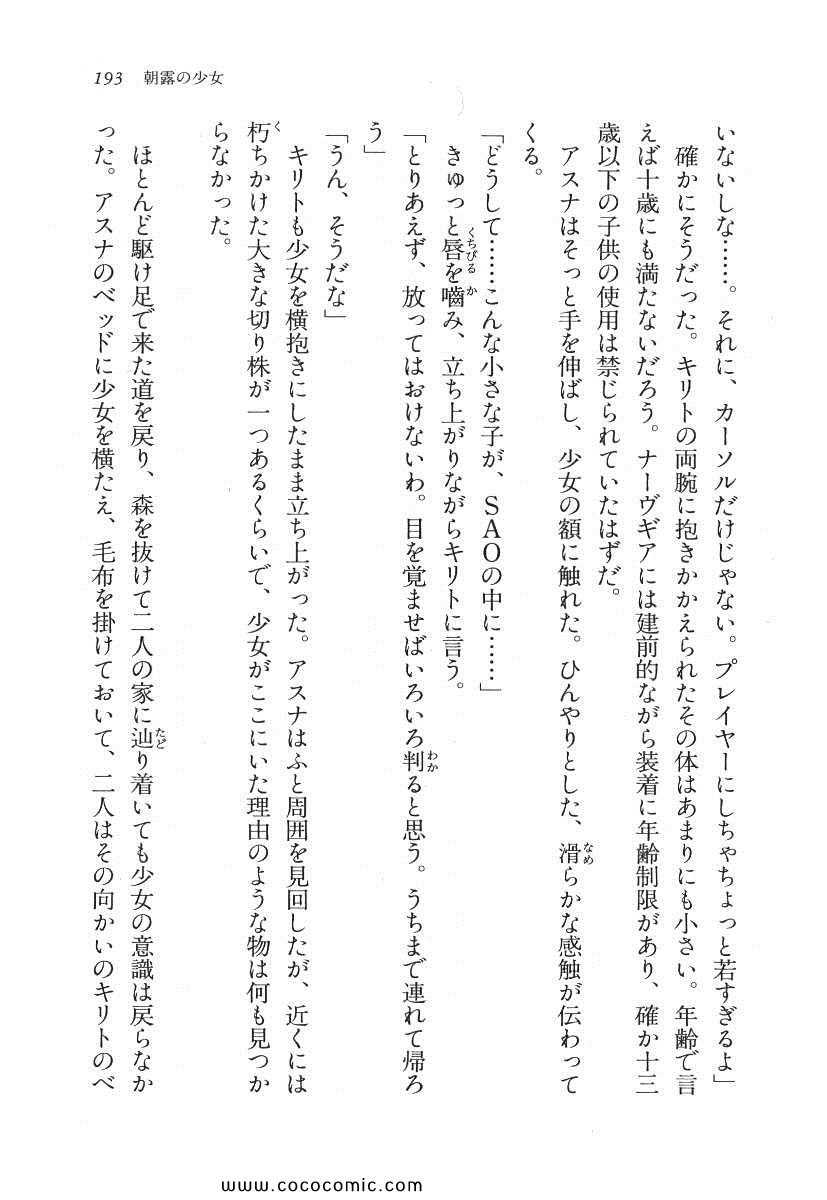 193 朝露の少女
いないしな……。それに、カーソルだけじゃない。プレイヤーにしちゃちょっと若すぎるよ」
　確かにそうだった。キリトの両腕に抱きかかえられたその体はあまりにも小さい。年齢で言
えば十歳にも満たないだろう。ナーヴギアには建前的ながら装着に年齢制限があり、確か十三
歳以下の子供の使用は禁じられていたはずだ。
　アスナはそっと手を伸ばし、少女の額に触れた。ひんやりとした、滑らかな感触が伝わって
くる。
「どうして……こんな小さな子が、ＳＡＯの中に……」
　きゅっと唇を嚙み、立ち上がりながらキリトに言う。
「とりあえず、放ってはおけないわ。目を覚ませばいろいろ判ると思う。うちまで連れて帰ろ
う」
「うん、そうだな」
　キリトも少女を横抱きにしたまま立ち上がった。アスナはふと周囲を見回したが、近くには
朽ちかけた大きな切り株が一つあるくらいで、少女がここにいた理由のような物は何も見つか
らなかった。
　ほとんど駆け足で来た道を戻り、森を抜けて二人の家に辿り着いても少女の意識は戻らなか
った。アスナのベッドに少女を横たえ、毛布を掛けておいて、二人はその向かいのキリトのベ
www.cococomic.com